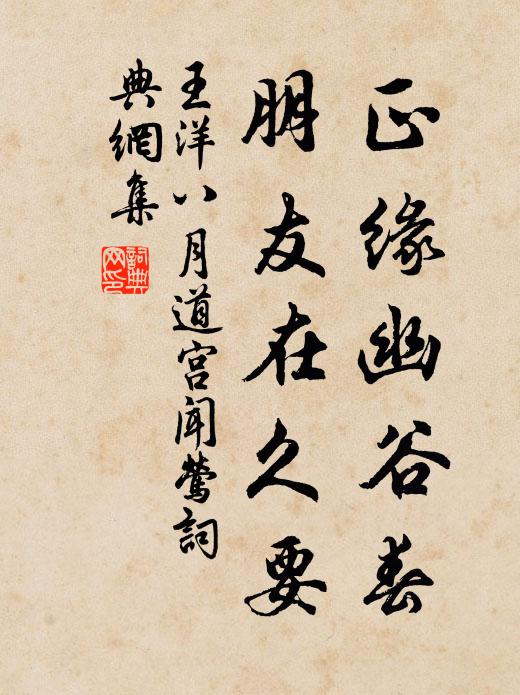 正缘幽谷春
朋友在久要
王洋八月道宫闻莺詞
典網集
詞典
网印